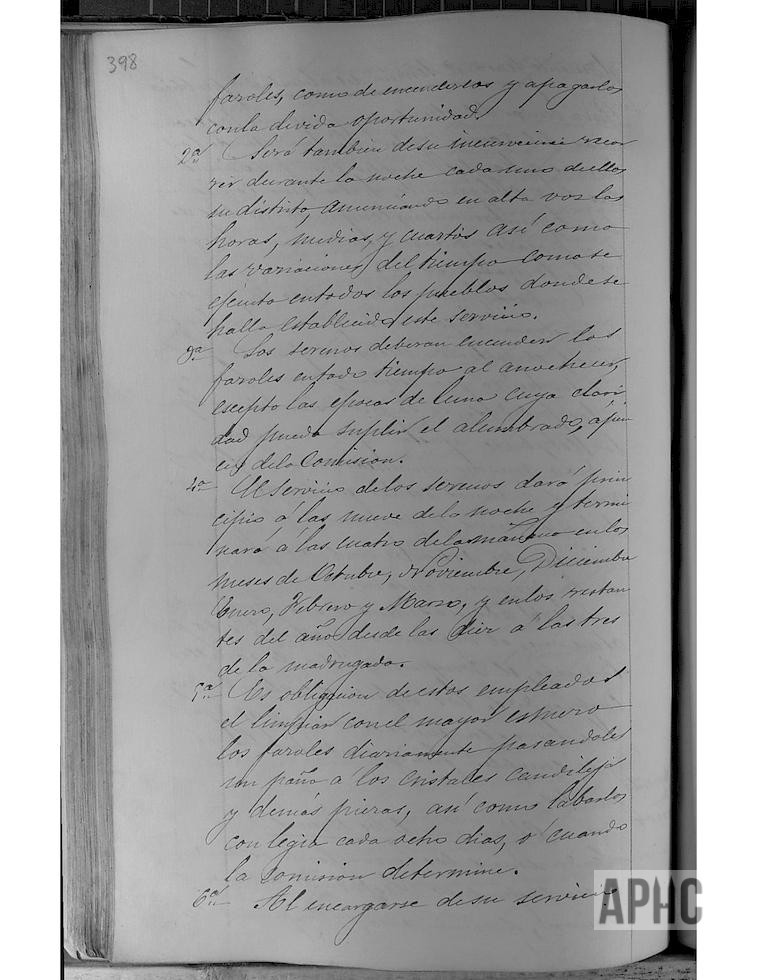 398
faroles, como de encenderlos y apagarlos
con la devida oportunidad.
2ª Será tambien de su incumvencia recor
rer durante la noche cada uno de ellos
su distrito, anunciando en alta vos las
horas, medias, y cuartos así como
las variaciones del tiempo como se
ejecuta en todos los pueblos donde se
halla establecido este servicio.
3ª Los serenos deberan encender los
faroles en todo tiempo al anochecer,
escepto las epocas de luna cuya clari
dad pueda suplir el alumbrado, a juı
cio de la Comision.
4ª El servicio de los serenos dará prin
cipio á las nueve de la noche y termi
nará á las cuatro de la mañana en los
meses de Octubre, Noviembre, Diciembre
Enero, Febrero y Marzo, y en los restan
tes del año desde las diez á las tres
de la madrugada.
5ª Es obligacion de estos empleados
el limpiar con el mayor esmero
los faroles diariamente pasandoles
un paño a los cristales candilejas
y demás piezas, así como labarlos
con legia cada ocho dias, ó cuando
la comision determine.
6ª Al encargarse de su servicio
APHC